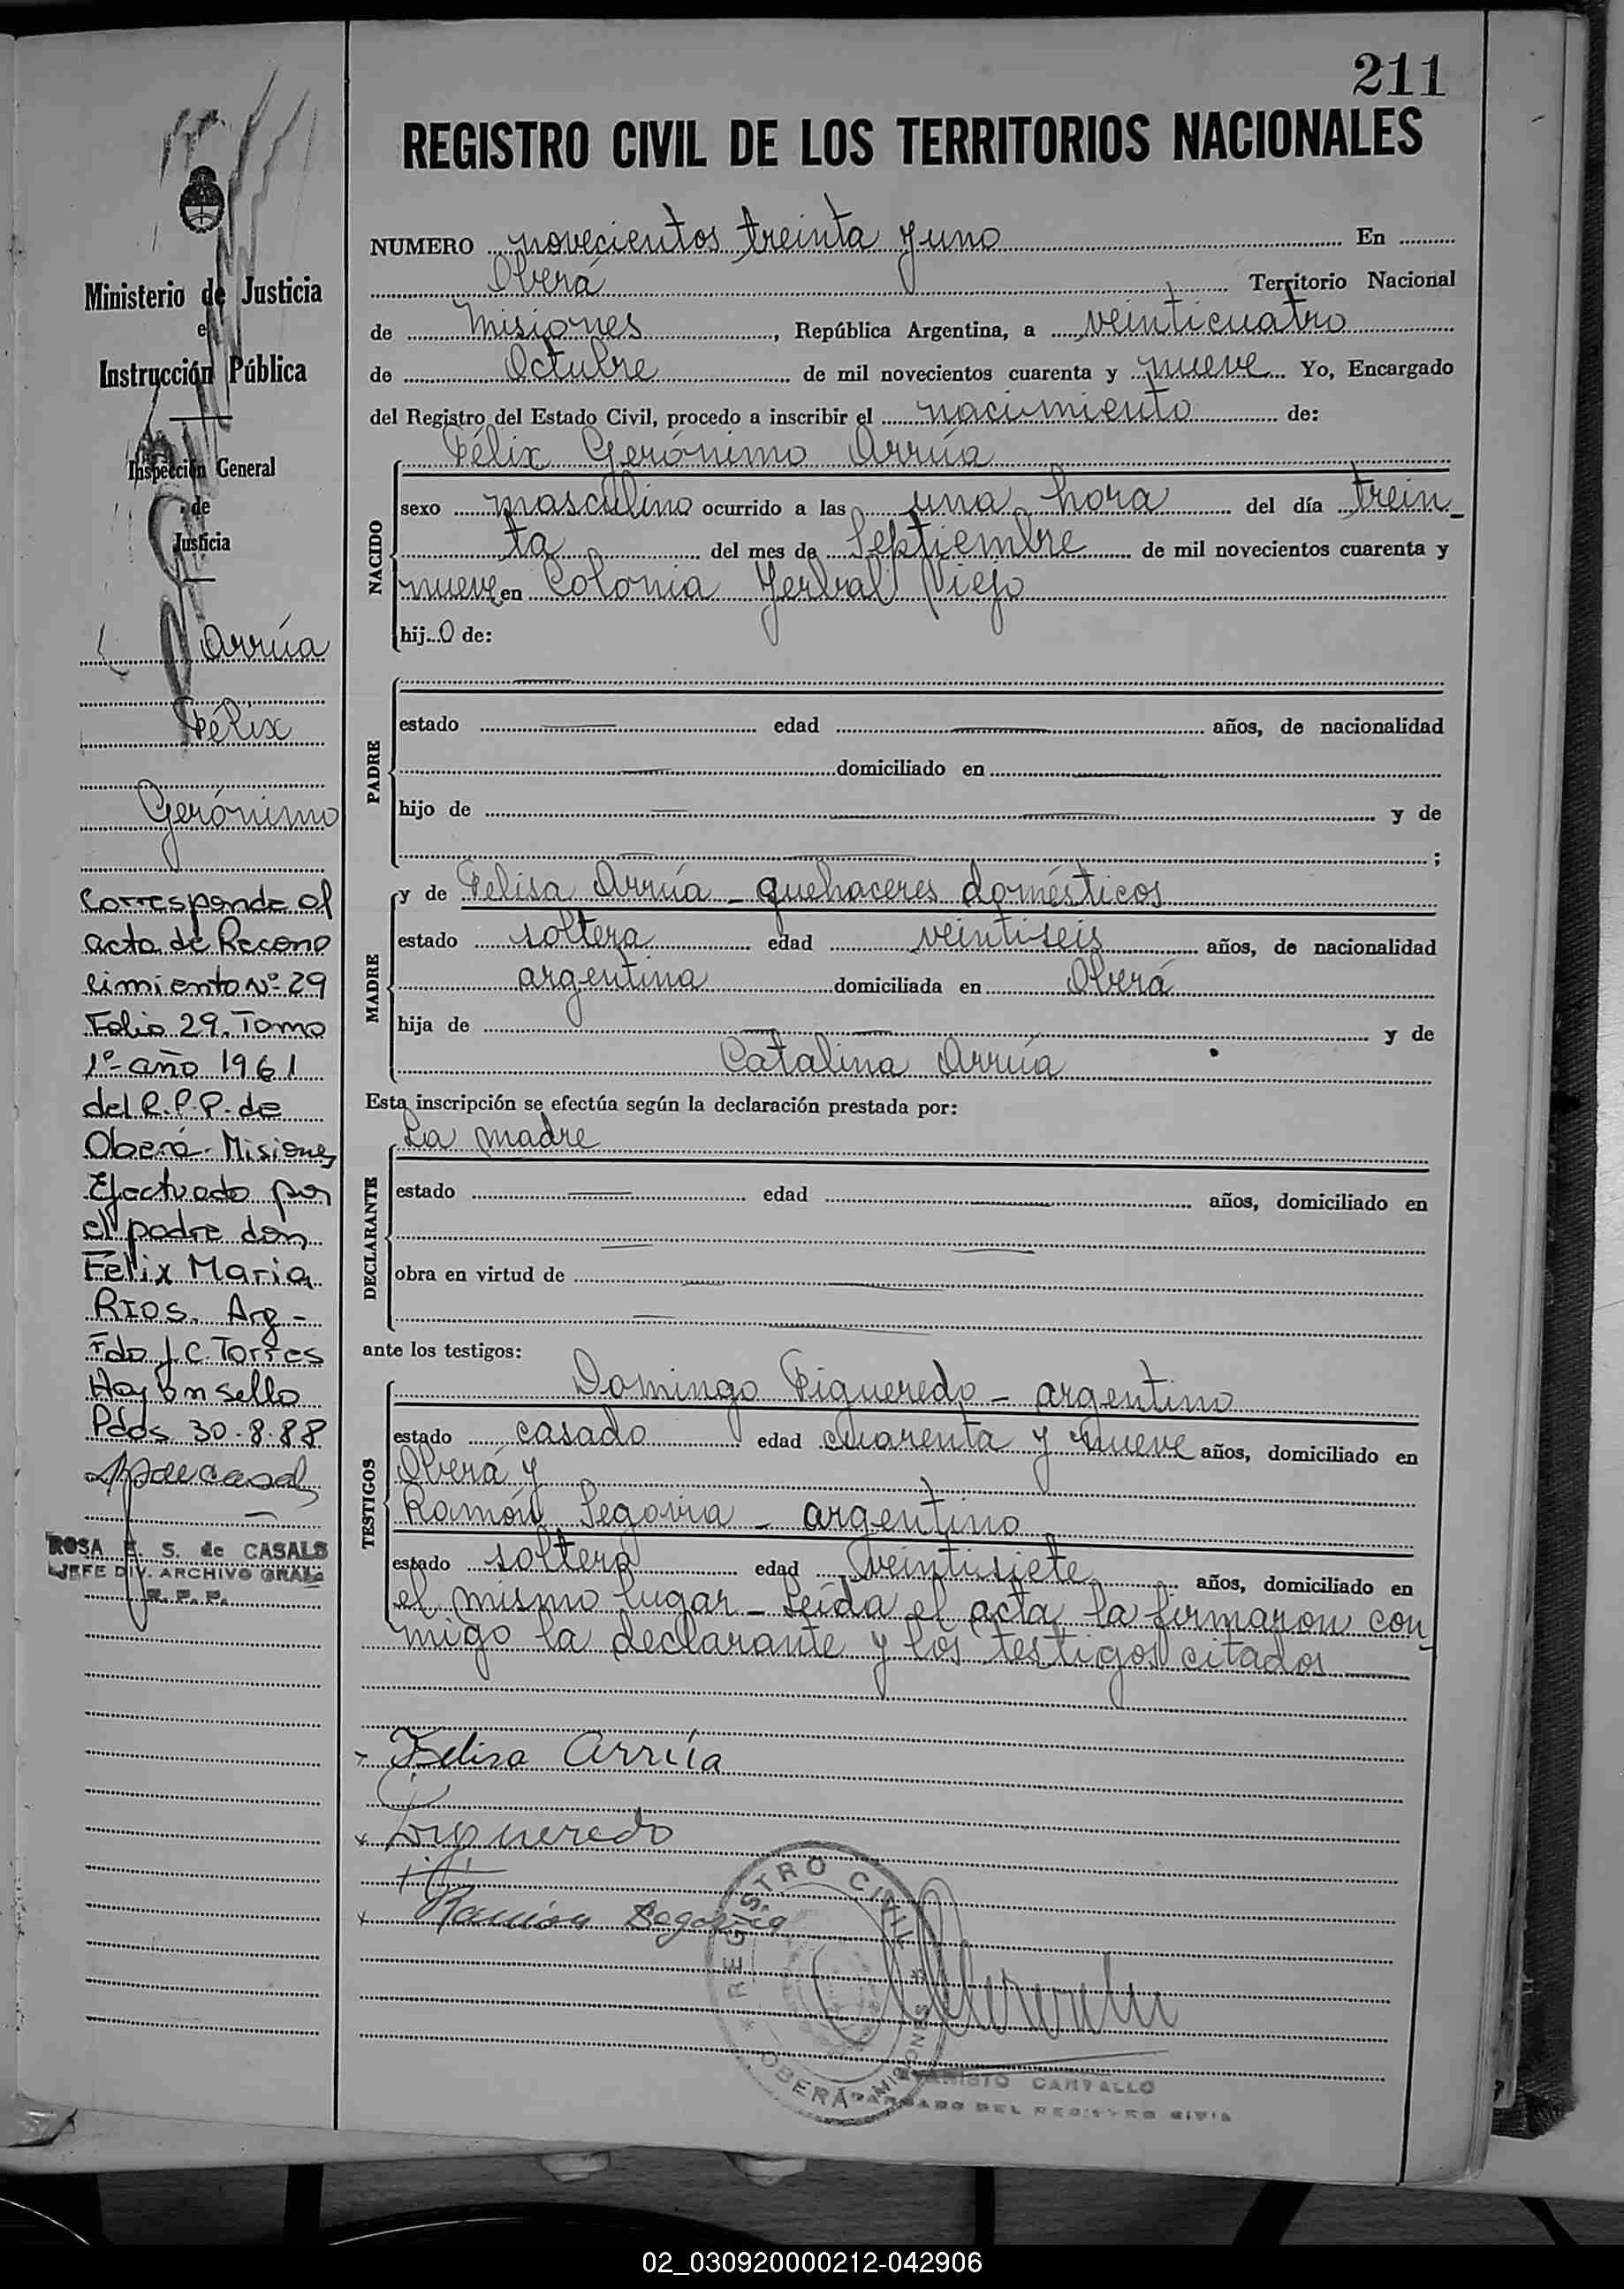 211
REGISTRO CIVIL DE LOS TERRITORIOS NACIONALES
NUMERO novecientos treinta y uno En
Oberá Territorio Nacional
de Misiones, República Argentina, a veinticuatro
de Octubre de mil novecientos cuarenta y nueve Yo, Encargado
del Registro del Estado Civil, procedo a inscribir el nacimiento de:
NACIDO
Félix Gerónimo Arrúa
sexo masculino ocurrido a las una hora del día trein-
ta del mes de Septiembre de mil novecientos cuarenta y
nueve en Colonia Yerbal Viejo
hijo de:
PADRE
estado edad años, de nacionalidad
domiciliado en
hijo de y de
;
MADRE
y de Felisa Arrúa - quehaceres domésticos
estado soltera edad veintiseis años, de nacionalidad
argentina domiciliada en Oberá
hija de y de
Catalina Arrúa
Esta inscripción se efectúa según la declaración prestada por:
DECLARANTE
La madre
estado edad años, domiciliado en
obra en virtud de
ante los testigos:
TESTIGOS
Domingo Figueredo - argentino
estado casado edad cuarenta y nueve años, domiciliado en
Oberá y
Ramón Segovia - argentino
estado soltero edad veintisiete años, domiciliado en
el mismo lugar - Leída el acta la firmaron con-
migo la declarante y los testigos citados
Felisa Arrúa
Figueredo
Ramón Segovia
REGISTRO CIVIL
OBERÁ - MISIONES
CARVALLO
ENCARGADO DEL REGISTRO CIVIL
Ministerio de Justicia
e
Instrucción Pública
Inspección General
de
Justicia
Arrúa
Félix
Gerónimo
Corresponde al
acta de Recono
cimiento Nº 29
Folio 29. Tomo
1º año 1961
del R.P.P. de
Oberá - Misiones
Efectuado por
el padre don
Felix Maria
RIOS. Arg -
Fdo J.C. Torres
Hay un sello
Pdas 30.8.88
ROSA S. de CASALS
JEFE DIV. ARCHIVO GRAL.
R. P. P.
02_030920000212-042906